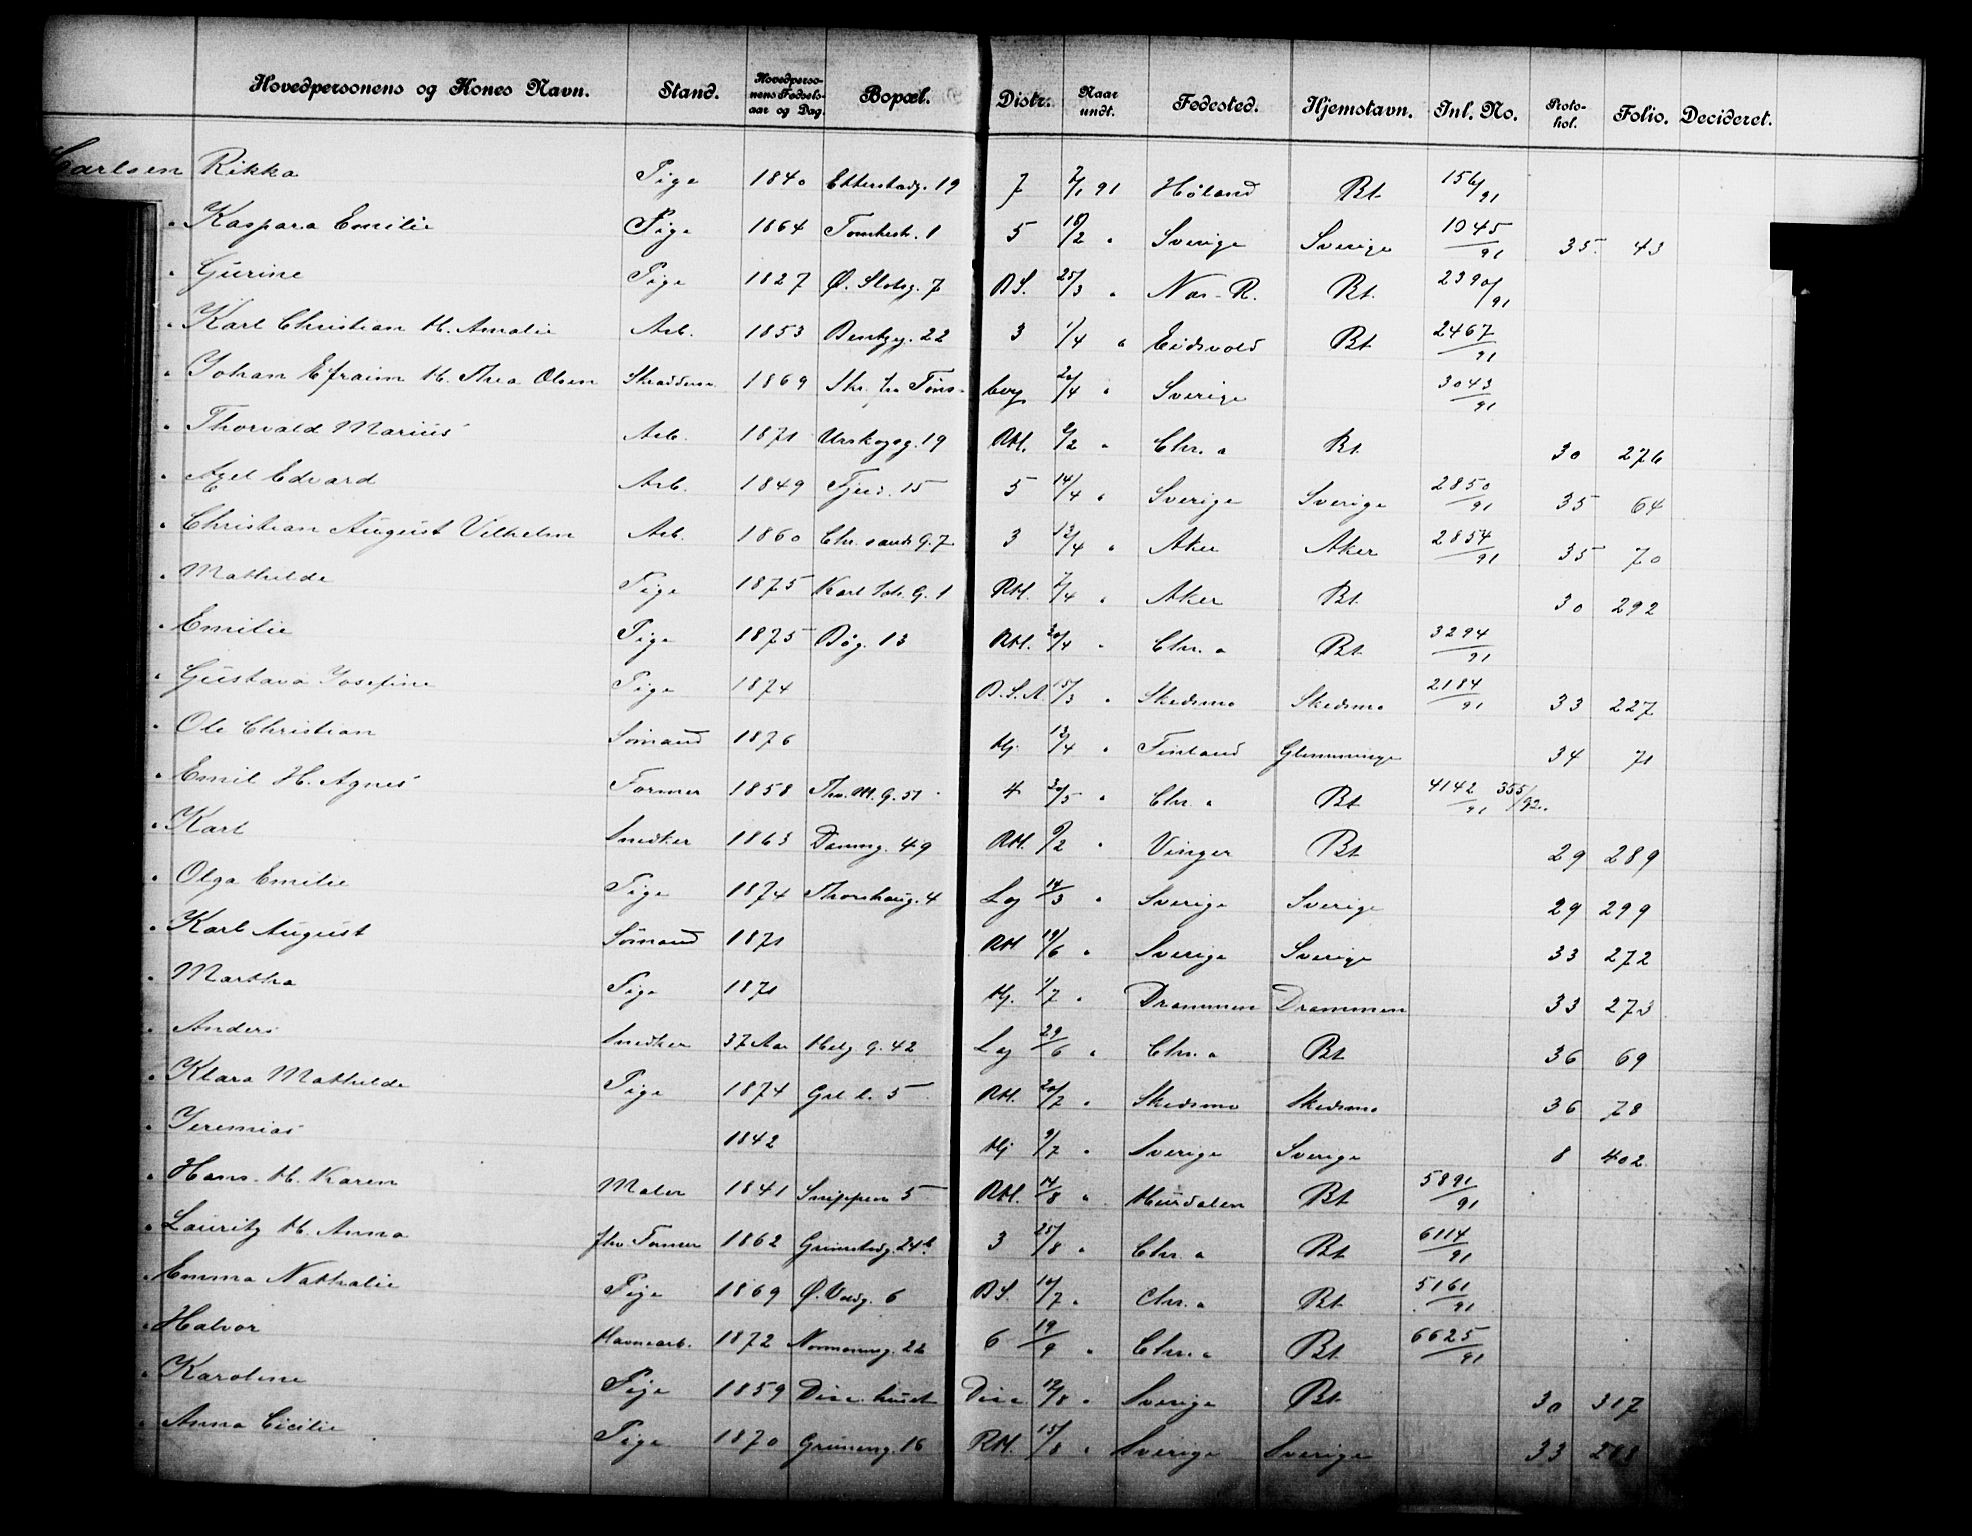 Hovedpersonens og Kones Navn. Stand. Hovedpersonens Fødselsaar og Dag. Bopæl. Distr. Naar undt. Fødested. Hjemstavn. Inl. No. Protokol. Folio. Decideret.
Karlsen Rikka Pige 1840 Etterstadg. 19 7 7/1 91 Høland Bt 156/91
" Kaspara Emilie Pige 1864 1 5 18/2 " Sverige Sverige 1045/91 35 43
" Gurine Pige 1827 Ø. Slotsg. 7 B.S. 25/3 " Næs - R. Bt. 2390/91
" Karl Christian H. Amalie Arb. 1853 22 3 1/4 " Eidsvold Bt 2467/91
" Johan Efraim H. Thea Olsen Skrædders. 1869 Str. fra Tønsberg 20/4 " Sverige 3043/91
" Thorvald Marius Arb. 1871 Urskogsg. 19 RH. 2/2 " Chr. a Bt 30 276
" Axel Edvard Arb. 1849 Fjeld. 15 5 14/4 " Sverige Sverige 2850/91 35 64
" Christian August Vilhelm Arb. 1860 Chr. sands G. 7 3 13/4 " Aker Aker 2854/91 35 70
" Mathilde Pige 1875 Karl Joh. G. 1 RH. 7/4 " Aker Bt 30 292
" Emilie Pige 1875 Bøg. 13 RH. 30/4 " Chr. a Bt 3294/91
" Gustava Josefine Pige 1874 B.S.A. 15/3 " Skedsmo Skedsmo 2184/91 33 227
" Ole Christian Sømand 1876 Hj. 13/4 " Finland Glemminge 34 71
" Emil H. Agnes Former 1858 Thv. M. G. 51 4 30/5 " Chr. a Bt 4142/91 355/92.
" Karl Snedker 1863 Damng. 49 RH. 9/2 " Vinger Bt 29 289
" Olga Emilie Pige 1874 Thorshaug. 4 Lg 14/3 " Sverige Sverige 29 299
" Karl August Sømand 1871 RH 19/6 " Sverige Sverige 33 272
" Martha Pige 1871 Hj. 1/7 " Drammen Drammen 33 273
" Anders Snedker 37 Aar Helg. G. 42 Lg 29/6 " Chr. a Bt 36 69
" Klara Mathilde Pige 1874 Grl l. 5 RH. 20/7 " Skedsmo Skedsmo 36 78
" Jeremias 1842 Hj 9/7 " Sverige Sverige 8 402
" Hans H. Karen Maler 1841 Snippen 5 RH. 14/8 " Hurdalen Bt 5891/91
" Lauritz H. Anna fhv. Former 1862 Grimstadg. 24b 3 25/8 " Chr. a Bt 6114/91
" Emma Nathalie Pige 1869 Ø. Voldg. 6 B.S. 10/7 " Chr. a Bt 5161/91
" Halvor Havnearb. 1872 Normannsg. 22 6 19/9 " Chr. a Bt 6625/91
" Karoline Pige 1859 Diac. huset Diac. 12/8 " Sverige Bt 30 317
" Anna Cicilie Pige 1870 Grüneng. 16 RH. 15/8 " Sverige Sverige 33